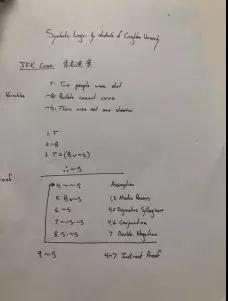 Symbolic Logic by students of Creighton University
JFK Case
T: Two people were shot
Variables ~B: Bullets cannot curve
~S: There was not one shooter
1. T
2. ~B
3. T ⊃ (B ∨ ~S)
∴ ~S
Proof
4. ~~S Assumption
5. B ∨ ~S 1,3 Modus Ponens
6. ~S 4,2 Disjunctive Syllogism
7. ~S · ~~S 4,6 Conjunction
8. S · ~S 7 Double Negation
9. ~S 4-7 Indirect Proof